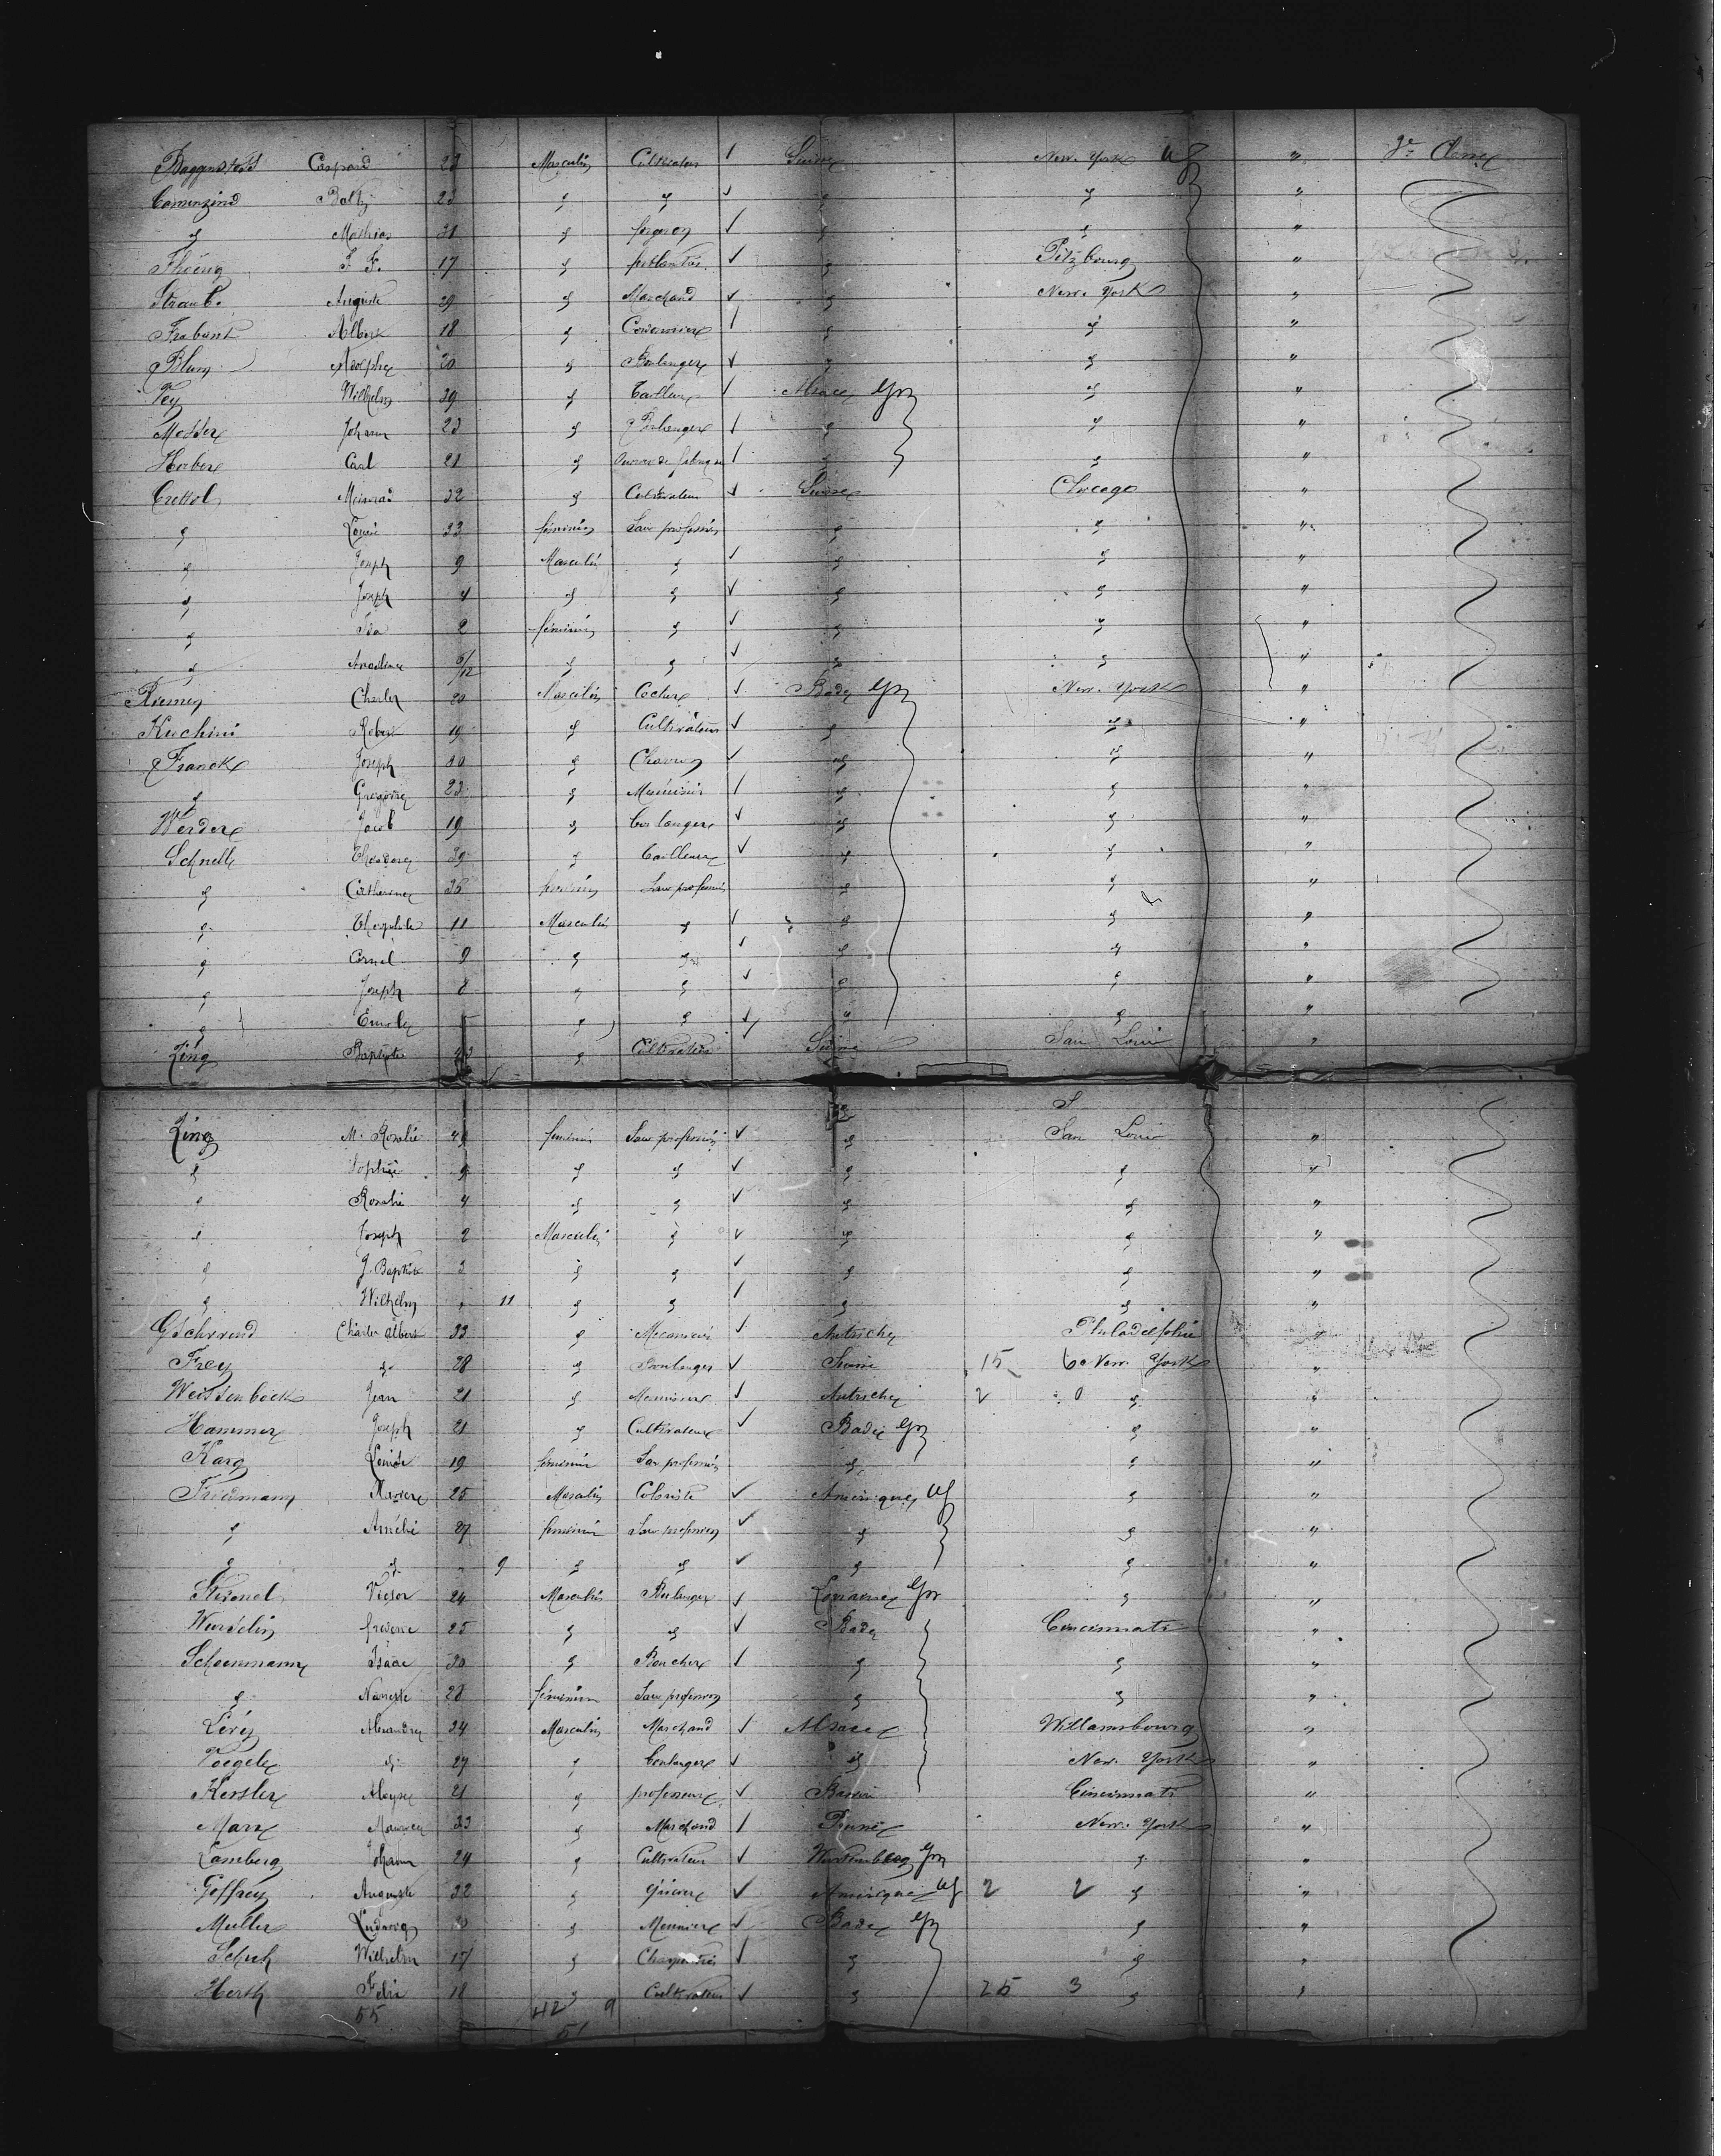 Baggenstoss Caspard 23 Masculin Cultivateur Suisse New-York US " 3e Classe
Camenzind Balz 23 " " " " "
" Mathias 31 " " " "
F. F. 17 " ferblantier " Pitzbourg "
Straub Auguste 29 " Marchand " New-York "
Albert 18 " " " "
Blum Adolphe 20 " Boulanger " " "
Vey Wilhelm 29 " Tailleur Alsace Gr " "
Messer Johann 23 " Boulanger " " "
Herber Carl 21 " Ouvrier de fabrique " " "
Crettol Meinrad 32 " Cultivateur Suisse Chicago "
" Louise 33 féminin Sans profession " " "
" Joseph 9 Masculin " " " "
" Joseph 4 " " " " "
" Ida 2 féminin " " " "
" 6/12 " " " " "
Riemen Charles 20 Masculin Bade Gr New-York "
Kuchini Robert 19 " Cultivateur " " "
Franck Joseph 30 " Charron " " "
" Gregoire 23 " Menuisier " " "
Werder Jacob 19 " boulanger " " "
Schnell Theodore 39 " Tailleur " " "
" Catherine 36 féminin Sans profession " " "
" Theophile 11 Masculin " " " "
" Cornel 9 " " " " "
" Joseph 8 " " " " "
" Emile " " " " "
Zing Baptiste 43 " Cultivateur Suisse San Louis "
Zing M. Rosalie féminin Sans profession " San Louis "
" Sophie 9 " " " " "
" Rosalie 4 " " " " "
" Joseph 2 Masculin " " " "
" J. Baptiste 3 " " " " "
" Wilhelm " 11 " " " " "
Gschwend Charles Albert 33 " Mecanicien Autriche Philadelphie "
Frey " 28 " Boulanger Suisse 15 60 New-York "
Weissenbock Jean 21 " Menuisier Autriche 2 0 " "
Hammer Joseph 21 " Cultivateur Bade Gr " "
Karg Louise 19 féminin Sans profession " " "
Friedmann Xavier 25 Masculin Coloriste Amerique US " "
" Amélie 27 féminin Sans profession " " "
" " " 9 " " " " "
Victor 24 Masculin Boulanger Lorraine Gr " "
Wurdelin frederic 25 " " Bade Cincinnati "
Scheinmann Isaac 30 " Boucher " " "
" Nanette 28 féminin Sans profession " " "
Levy Alexandre 24 Masculin Marchand Alsace Willamsbourg "
Voegele " 27 " boulanger " New-York "
Kessler Aloyse 21 " professeur Baviere Cincinnati "
Marx Maurice 33 " Marchand Prusse New-York "
Lamberg Johann 24 " Cultivateur Wurtemberg Gr " "
Geffrey Auguste 32 " Amerique US 2 2 " "
Muller Ludwig 20 " Meunier Bade Gr " "
Schuh Wilhelm 17 " Charpentier " " "
Herth Felix 18 " Cultivateur " 25 3 " "
55 42 9
51